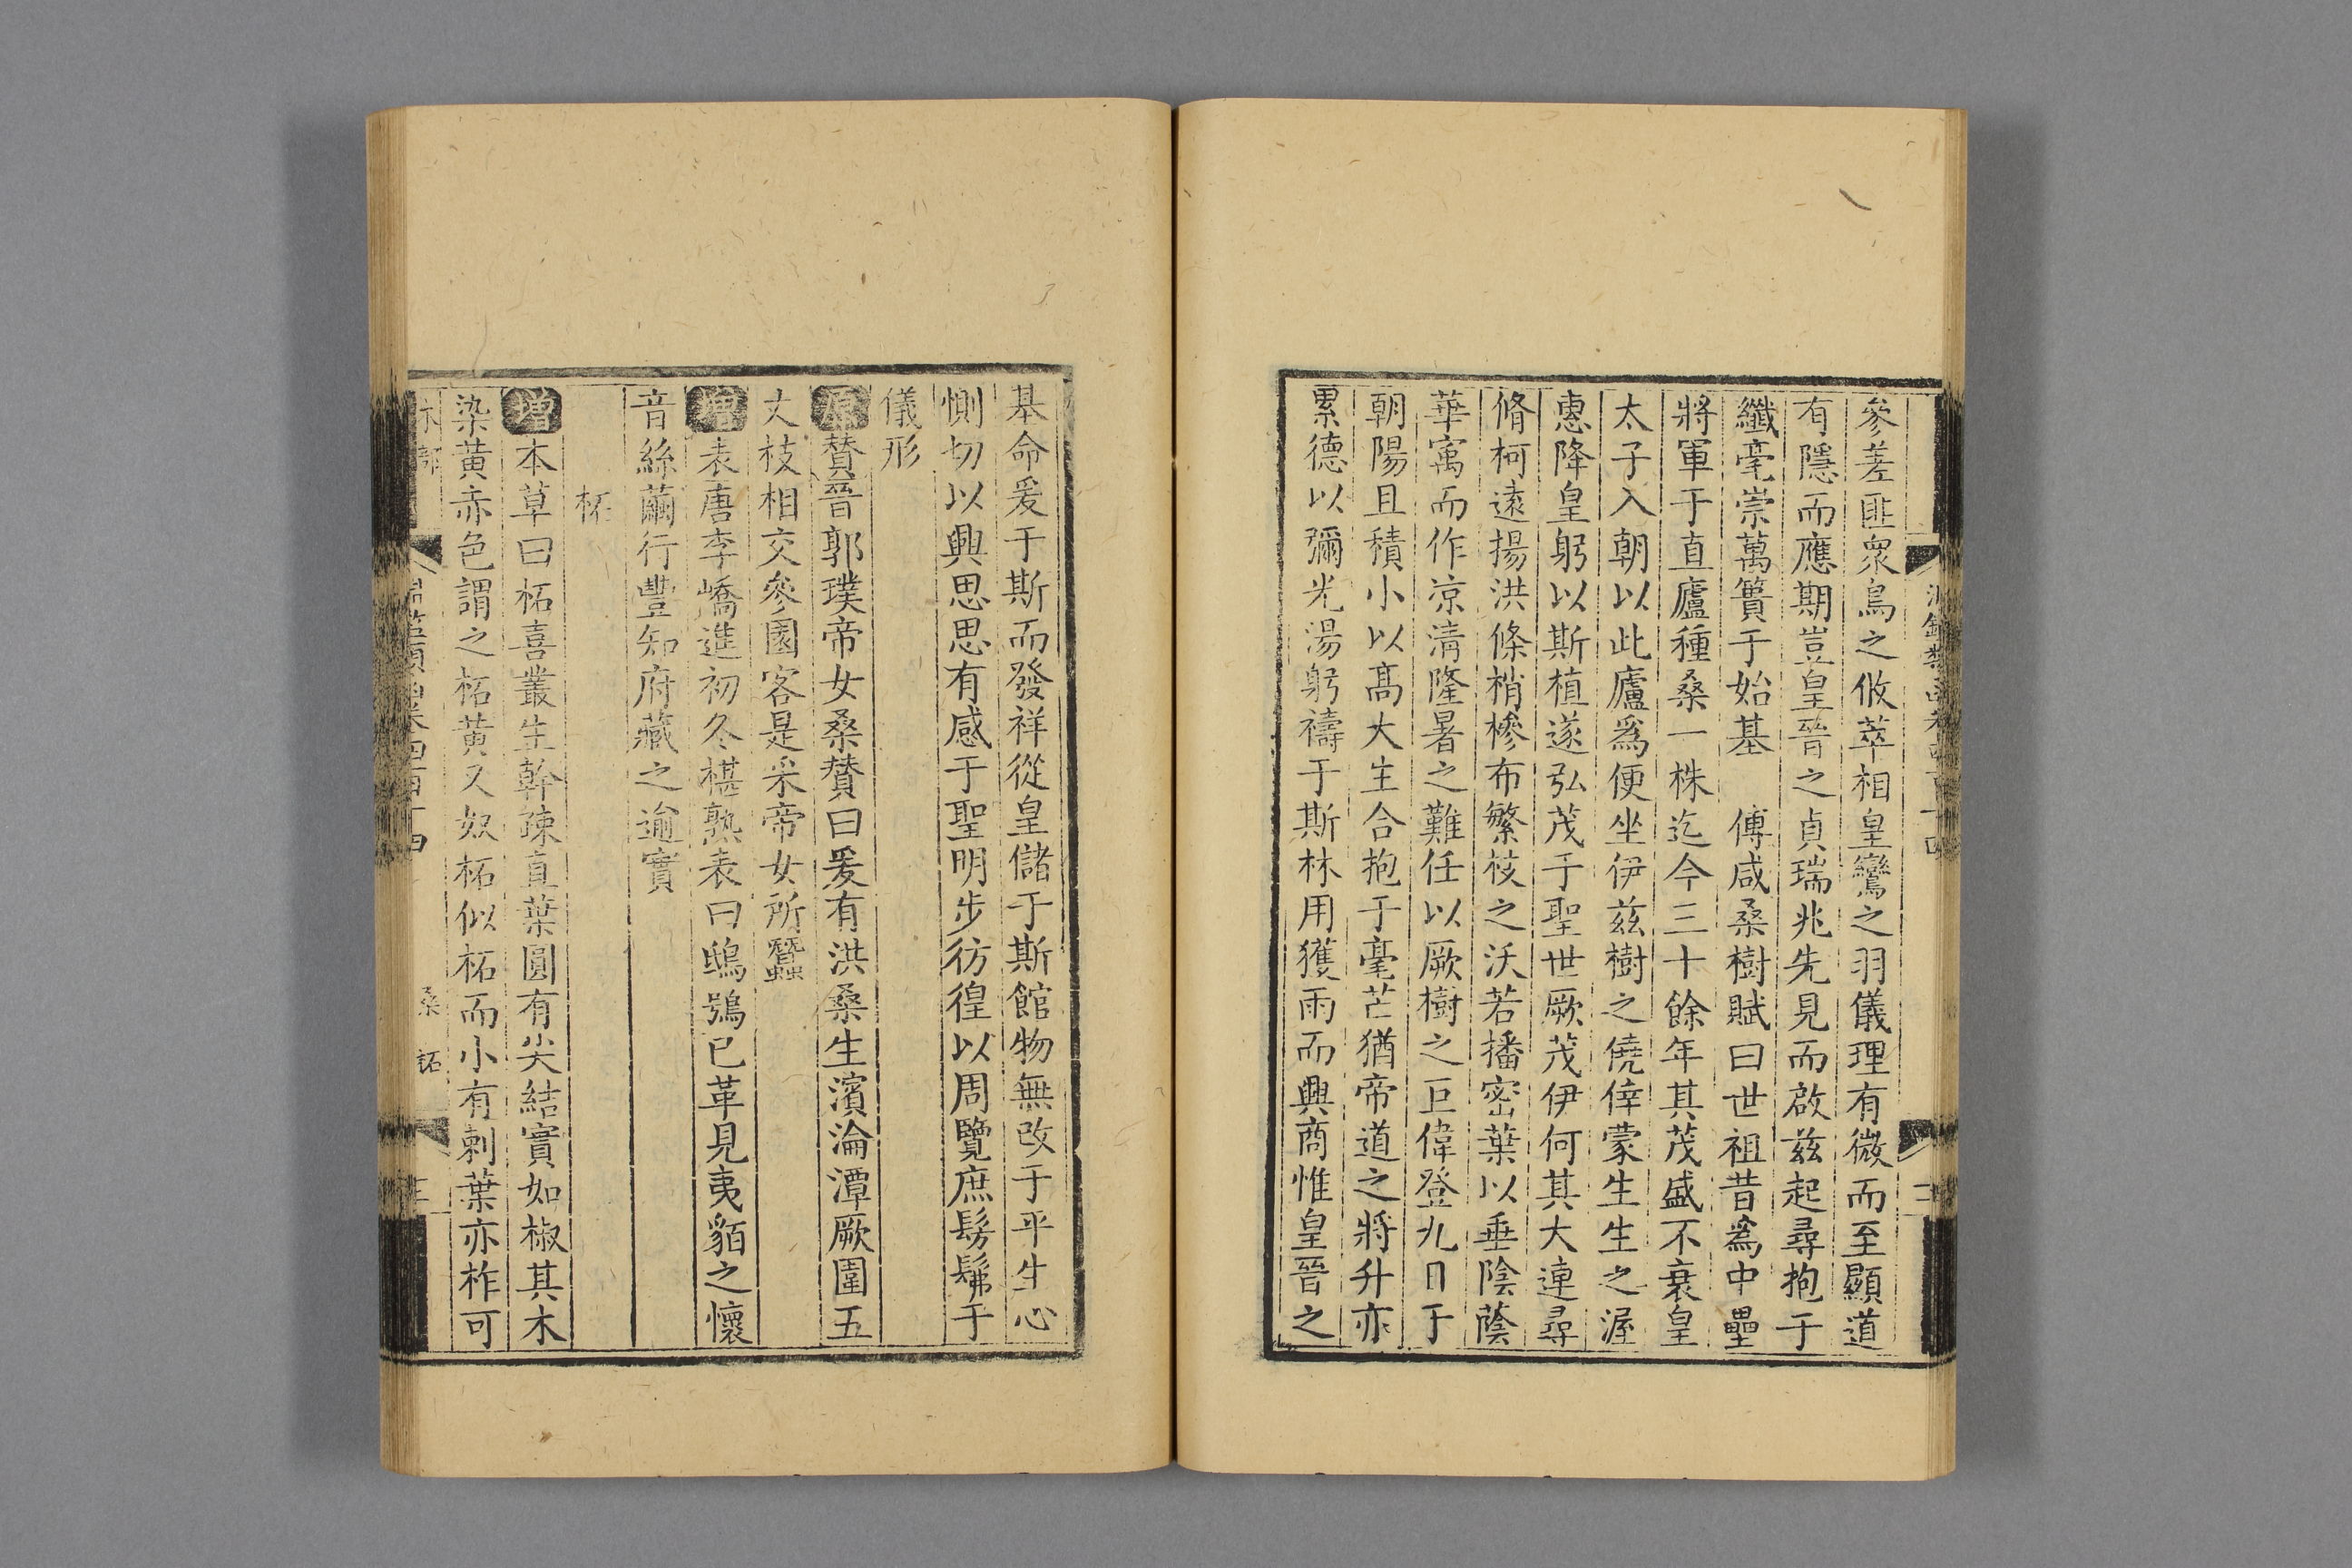 參差匪衆鳥之攸萃相皇鸞之羽儀理有微而至顯道
有隱而應期豈皇晉之貞瑞兆先見而啟茲起尋抱于
纖毫崇萬簣于始基　傅咸桑樹賦曰世祖昔爲中壘
將軍于直廬種桑一株迄今三十餘年其茂盛不衰皇
太子入朝以此廬爲便坐伊茲樹之僥倖蒙生生之渥
惠降皇躬以斯植遂弘茂于聖世厥茂伊何其大連尋
脩柯遠揚洪條梢槮布繁枝之沃若播密葉以垂陰蔭
華㝢而作凉清隆暑之難任以厥樹之巨偉登九日于
朝陽且積小以髙大生合抱于毫芒猶帝道之將升亦
累德以彌光湯躬禱于斯林用獲雨而興商惟皇晉之
基命爰于斯而發祥從皇儲于斯館物無改于平生心
惻切以興思思有感于聖明步彷徨以周覽庶髣髴于
儀形
原贊晉郭璞帝女桑贊曰爰有洪桑生濱淪潭厥圍五
丈枝相交參園客是采帝女所蠶
增表唐李嶠進初冬椹熟表曰鴟鴞已革見夷貊之懷
音絲繭行豐知府藏之逾實
柘
增本草曰柘喜叢生幹疎直葉圓有尖結實如椒其木
染黃赤色謂之柘黃又奴柘似柘而小有刺葉亦柞可
桑　柘